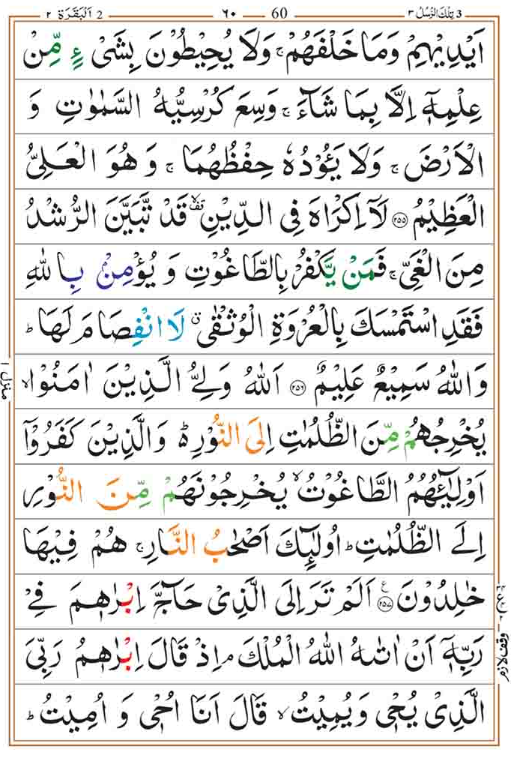 3 تِلْكَ الرُّسُلُ ٣ 60 ٦٠ 2 اَلْبَقَرَة ٢
اَيْدِيْهِمْ وَمَا خَلْفَهُمْ ۚ وَلَا يُحِيْطُوْنَ بِشَیْءٍ مِّنْ
عِلْمِهٖٓ اِلَّا بِمَا شَآءَ ۚ وَسِعَ كُرْسِيُّهُ السَّمٰوٰتِ وَ
الْاَرْضَ ۚ وَلَا يَـُٔوْدُهٗ حِفْظُهُمَا ۚ وَ هُوَ الْعَلِىُّ
الْعَظِيْمُ ۝٢٥٥ لَآ اِكْرَاهَ فِى الدِّيْنِ ۙ قَدْ تَّبَيَّنَ الرُّشْدُ
مِنَ الْغَىِّ ۚ فَمَنْ يَّكْفُرْ بِالطَّاغُوْتِ وَ يُؤْمِنْۢ بِاللّٰهِ
فَقَدِ اسْتَمْسَكَ بِالْعُرْوَةِ الْوُثْقٰى ۗ لَا انْفِصَامَ لَهَا ؕ
وَاللّٰهُ سَمِيْعٌ عَلِيْمٌ ۝٢٥٦ اَللّٰهُ وَلِىُّ الَّذِيْنَ اٰمَنُوْا ۙ
يُخْرِجُهُمْ مِّنَ الظُّلُمٰتِ اِلَى النُّوْرِ ؕ وَالَّذِيْنَ كَفَرُوْٓا
اَوْلِيٰٓـُٔهُمُ الطَّاغُوْتُ ۙ يُخْرِجُوْنَهُمْ مِّنَ النُّوْرِ
اِلَى الظُّلُمٰتِ ؕ اُولٰٓئِكَ اَصْحٰبُ النَّارِ ۚ هُمْ فِيْهَا
خٰلِدُوْنَ ۝٢٥٧ ع اَلَمْ تَرَ اِلَى الَّذِىْ حَآجَّ اِبْرٰهٖمَ فِىْ
رَبِّهٖٓ اَنْ اٰتٰىهُ اللّٰهُ الْمُلْكَ ۘ اِذْ قَالَ اِبْرٰهٖمُ رَبِّىَ
الَّذِىْ يُحْىٖ وَيُمِيْتُ ۙ قَالَ اَنَا اُحْىٖ وَ اُمِيْتُ ؕ
منزل ١
وقف لازم